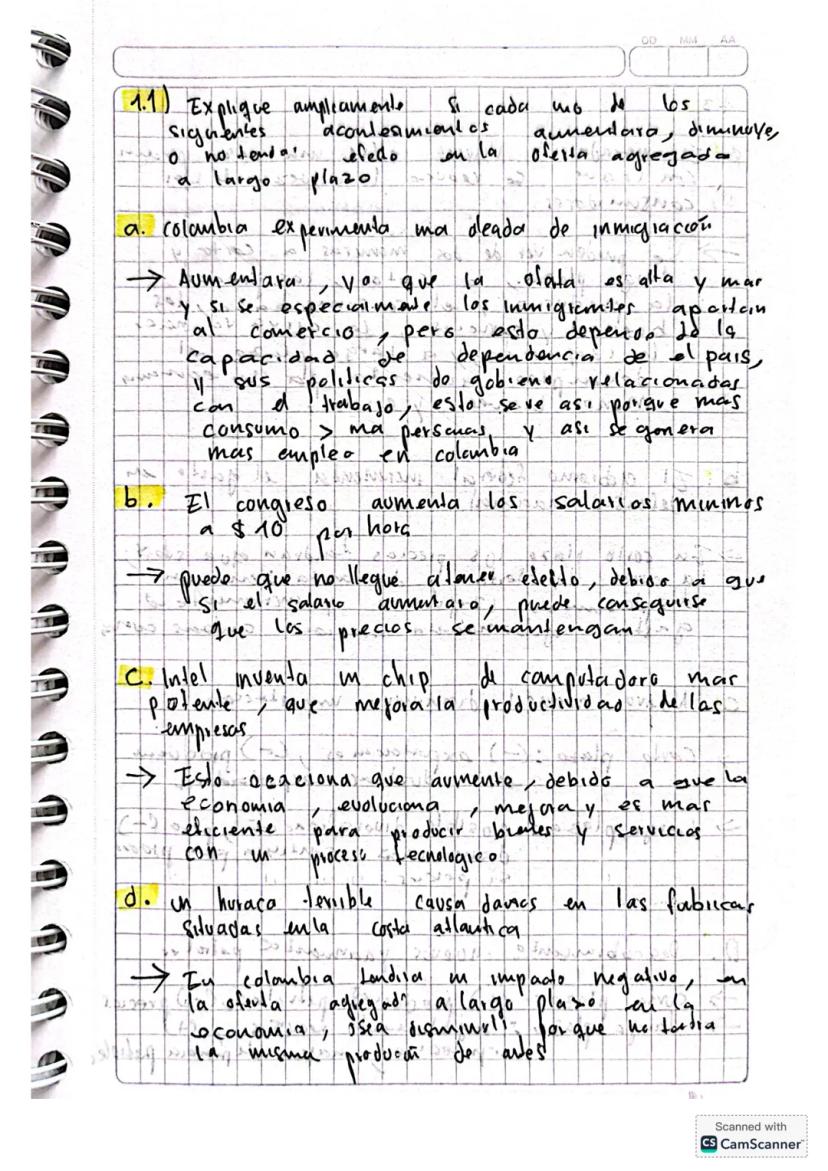 DD MM AA
1.1) Explique ampliamente si cada uno de los
siguientes acontesimientos aumentara, diminuye,
o no tendra efecto en la oferta agregada
a largo plazo
a. colombia experimenta una oleada de inmigración
→ Aumentara, ya que la oferta es alta y mas
y si se especialmente los inmigrantes aportan
al comercio, pero esto depende de la
capacidad de dependencia de el pais,
y sus politicas de gobieno relacionadas
con el trabajo, esto se ve asi porque mas
consumo > ma personas, y asi se genera
mas empleo en colombia
b. El congreso aumenta los salarios minimos
a $ 10 por hora
→ puede que no llegue a tener efecto, debido a que
si el salario aumentara, puede conseguirse
que los precios se mantengan
C. Intel inventa un chip de computadora mas
potente, que mejora la productividad de las
empresas
→ Esto ocaciona que aumente, debido a que la
economia, evoluciona, mejora y es mas
eficiente para producir bienes y servicios
con un proceso tecnologico
d. un huraca terrible causa danos en las fabricas
situadas en la costa atlantica
→ En colombia tendria un impacto negativo, en
la oferta agregada a largo plazo en la
economia, osea por que no tendria
la misma producon de antes
Scanned with
CS CamScanner